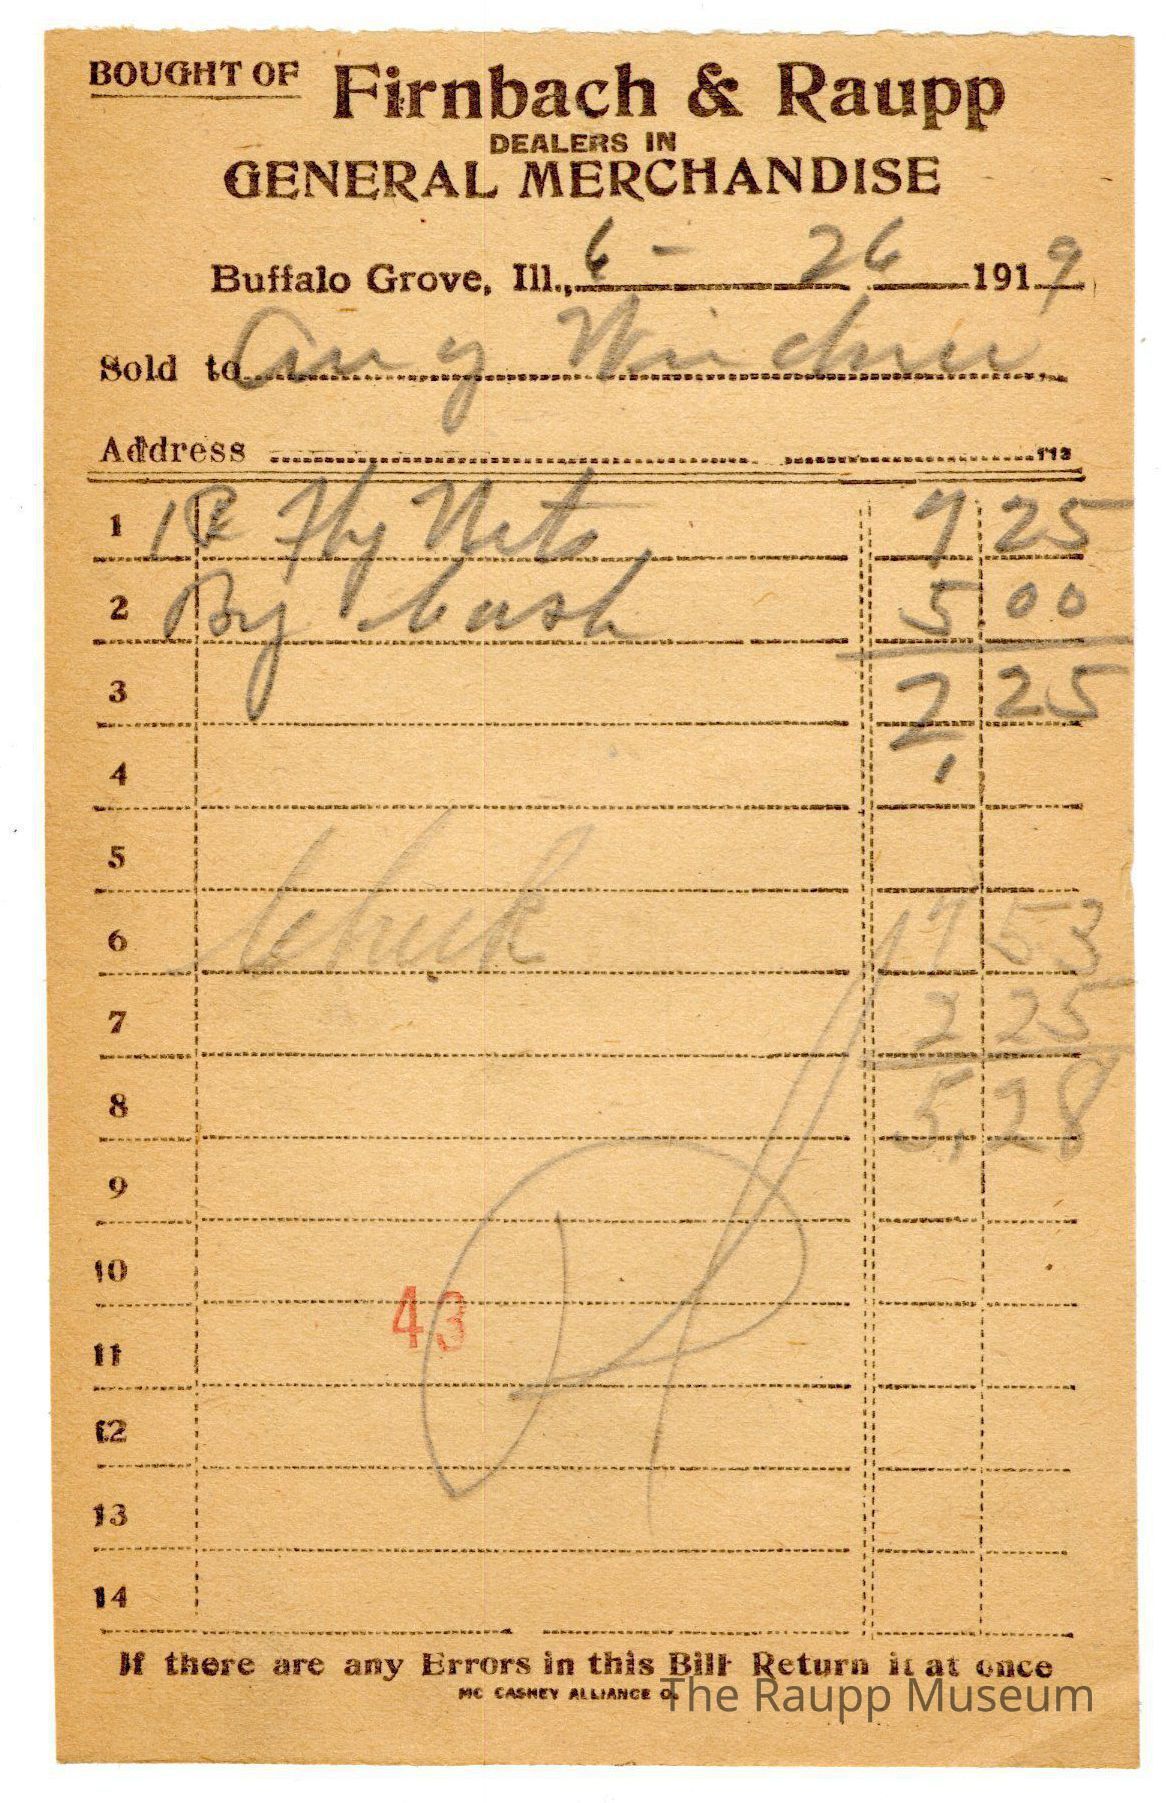 BOUGHT OF Firnbach & Raupp
DEALERS IN
GENERAL MERCHANDISE
Buffalo Grove, Ill., 6 - 26 1919
Sold to
Address
1 Fly Nets 7 25
2 By Cash 5.00
3 2,25
4
5
6 Check 7 53
7 2 25
8 5,28
9
10
43
11
12
13
14
If there are any Errors in this Bill Return it at once
MC CASKEY ALLIANCE O.
The Raupp Museum